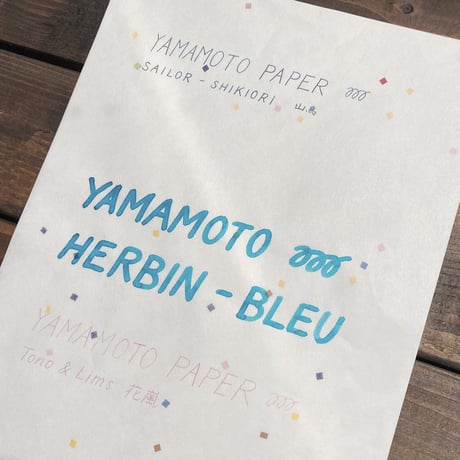 YAMAMOTO PAPER
SAILOR - SHIKIORI 山鳥
YAMAMOTO
HERBIN - BLEU
YAMAMOTO PAPER
Tono & Lims 花嵐